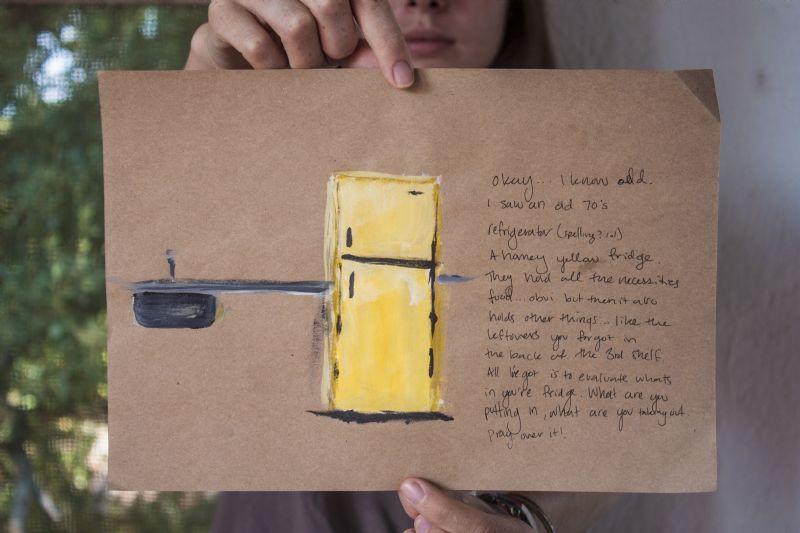 Okay... I know odd.
I saw an old 70's
refrigerator (spelling? lol)
A honey yellow fridge.
They had all the necessities
food... obvi but then it also
holds other things... like the
leftovers you forgot in
the back of the 3rd shelf.
All I got is to evaluate whats
in you're fridge. What are you
putting in, what are you taking out.
Pray over it!